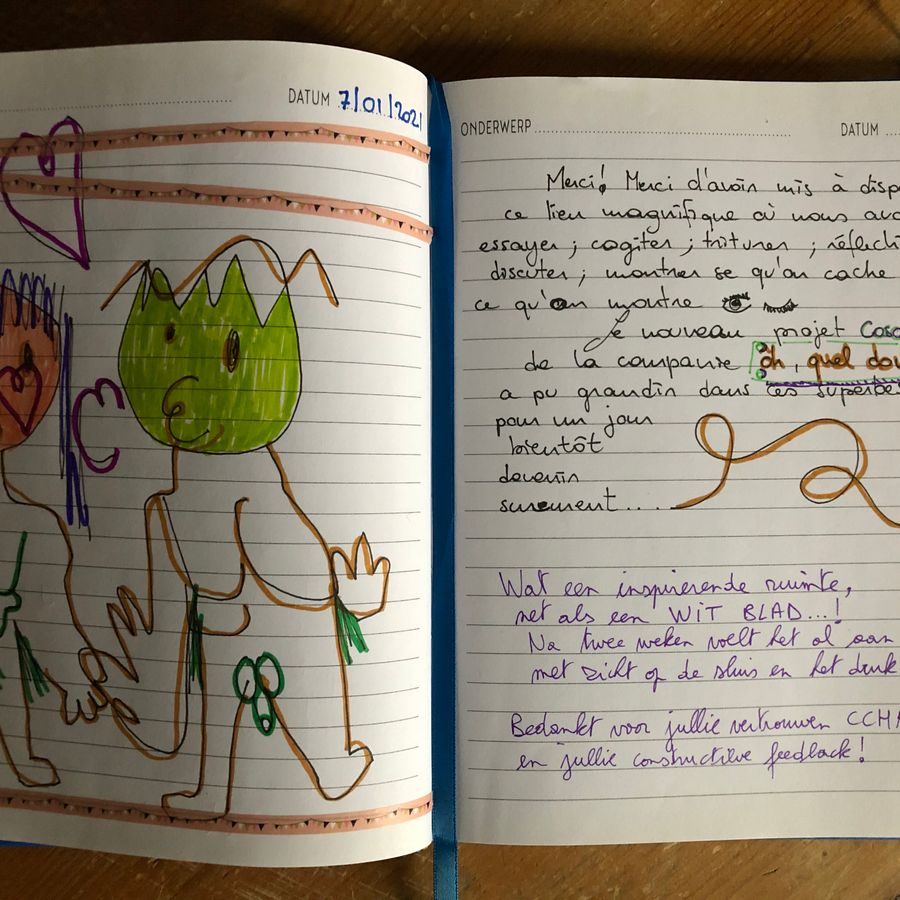 DATUM 7/01/2021
ONDERWERP DATUM
Merci! Merci d'avoir mis à dispo
ce lieu magnifique où nous avo
essayer ; cogiter ; triturer ; réflechi
discuter ; montrer se qu'on cache
ce qu'on montre
Le nouveau projet Coso
de la companie Oh, quel dou
a pu grandir dans ces superbes
pour un jour
bientôt
devenir
surement....
Wat een inspirerende ruimte,
net als een WIT BLAD...!
Na twee weken voelt het al aan
met zicht op de sluis en het
Bedankt voor jullie vertrouwen CCHA
en jullie constructieve feedback!